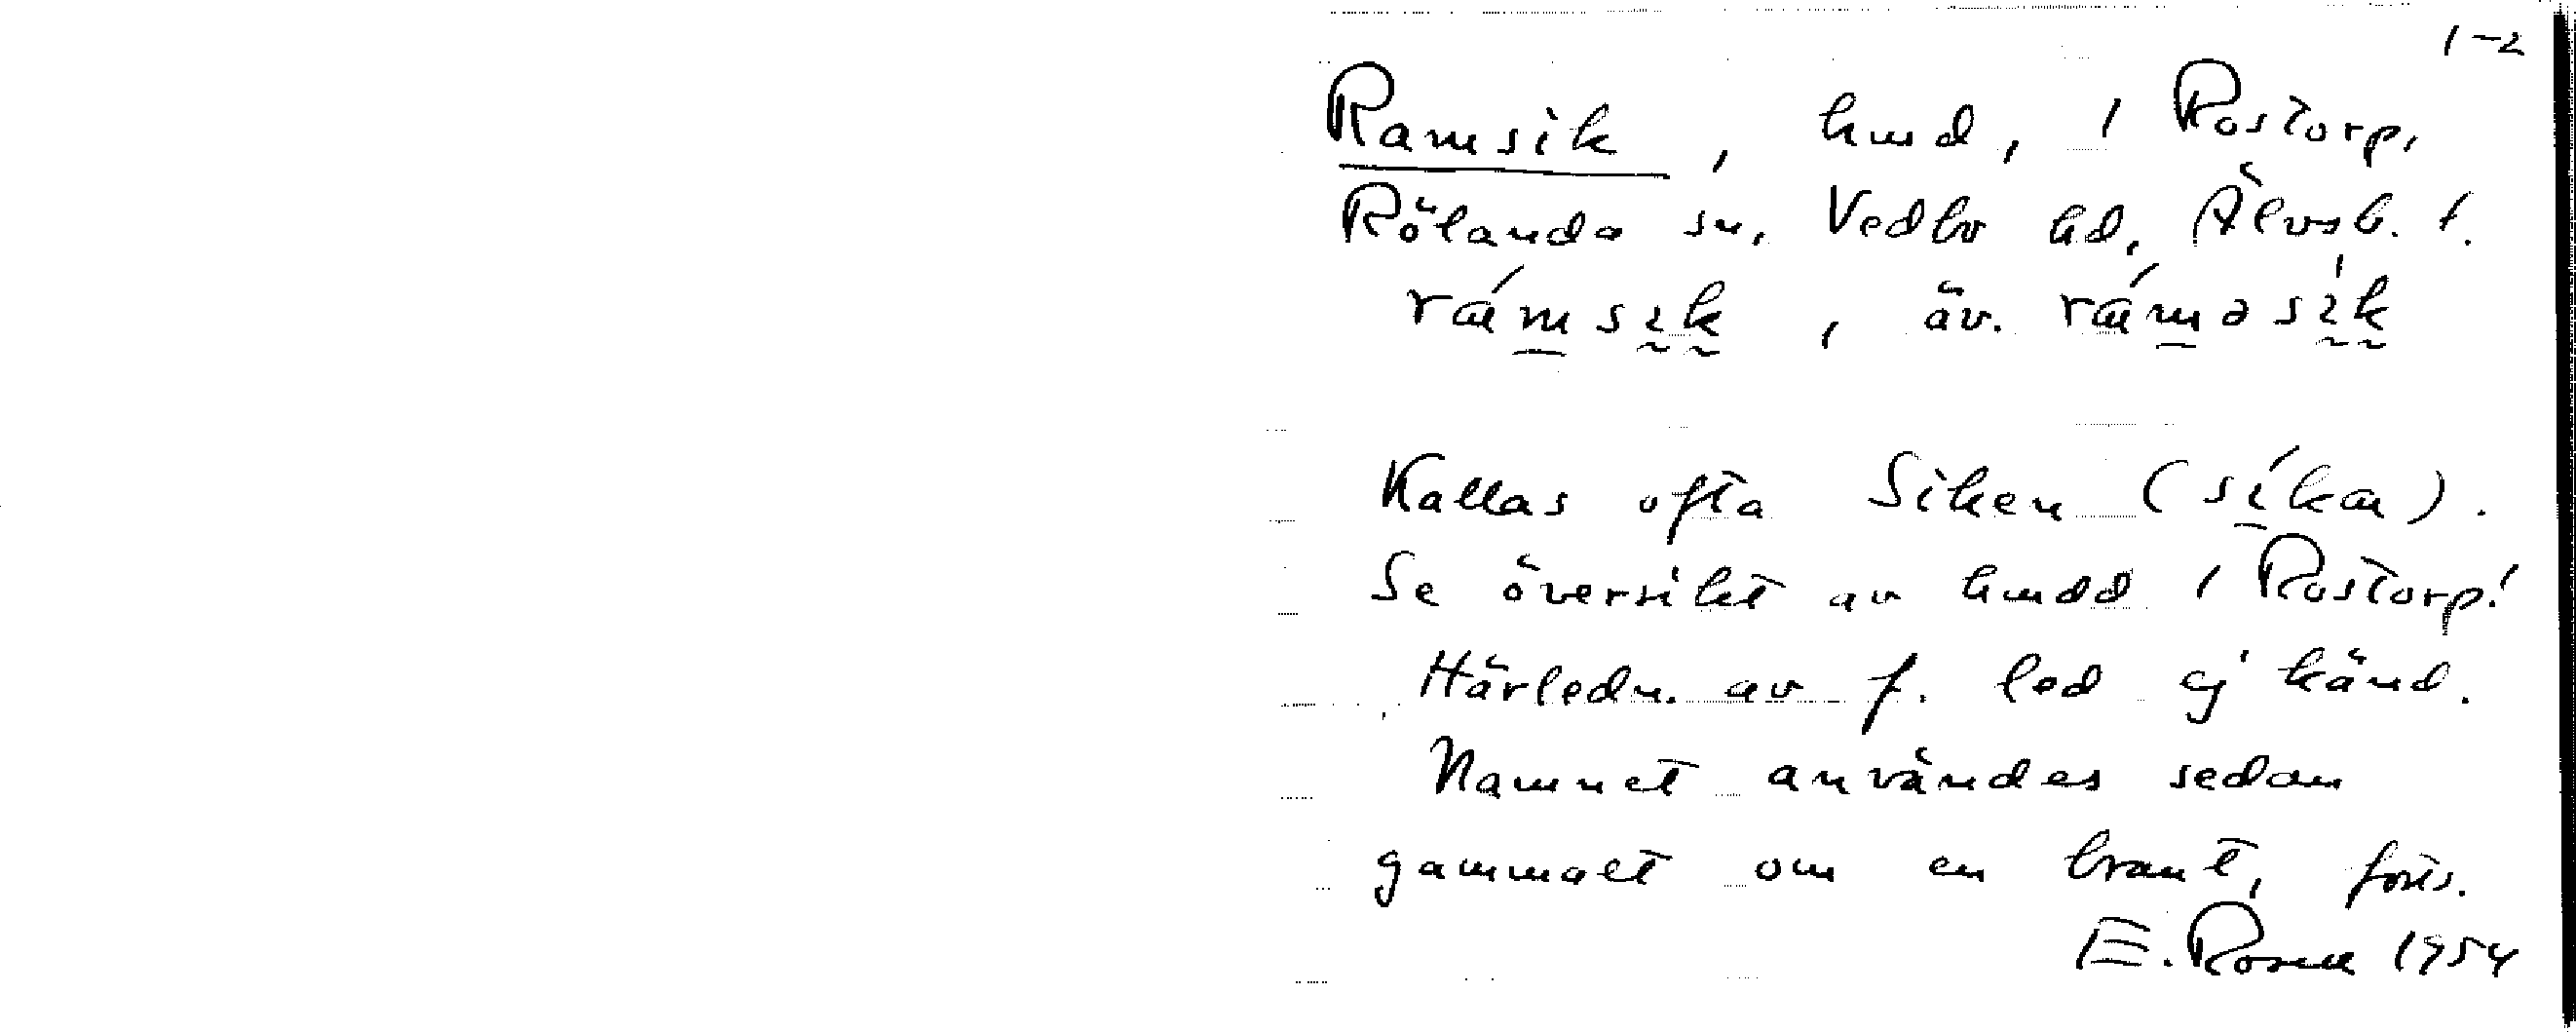 1-2
Ramsik, hmd, i Rostorp,
Rölanda sn, Vedbo hd, Älvsb. l.
rámsik, äv. ráməsìk
Kallas ofta Siken (síkæ).
Se översikt av hmdd i Rostorp!
Härledn. av f. led ej känd.
Namnet användes sedan
gammalt om en brant, forts.
E. Rosell 1954